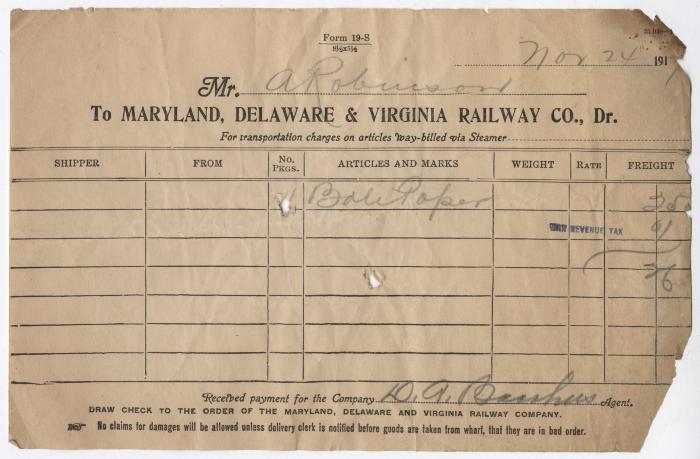 Form 19-S
8½x5½
Nov 24 191
Mr. A Robinson
To MARYLAND, DELAWARE & VIRGINIA RAILWAY CO., Dr.
For transportation charges on articles way-billed via Steamer
SHIPPER FROM No. PKGS. ARTICLES AND MARKS WEIGHT RATE FREIGHT
Bdl Paper 25
REVENUE TAX 01
26
Received payment for the Company D. A. Agent.
DRAW CHECK TO THE ORDER OF THE MARYLAND, DELAWARE AND VIRGINIA RAILWAY COMPANY.
No claims for damages will be allowed unless delivery clerk is notified before goods are taken from wharf, that they are in bad order.